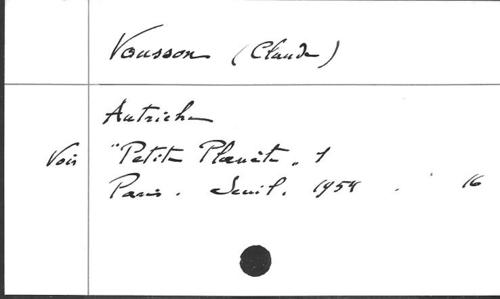 Vausson (Claude)
Autriche
Voir "Petite Planète" 1
Paris. Seuil. 1954. 16